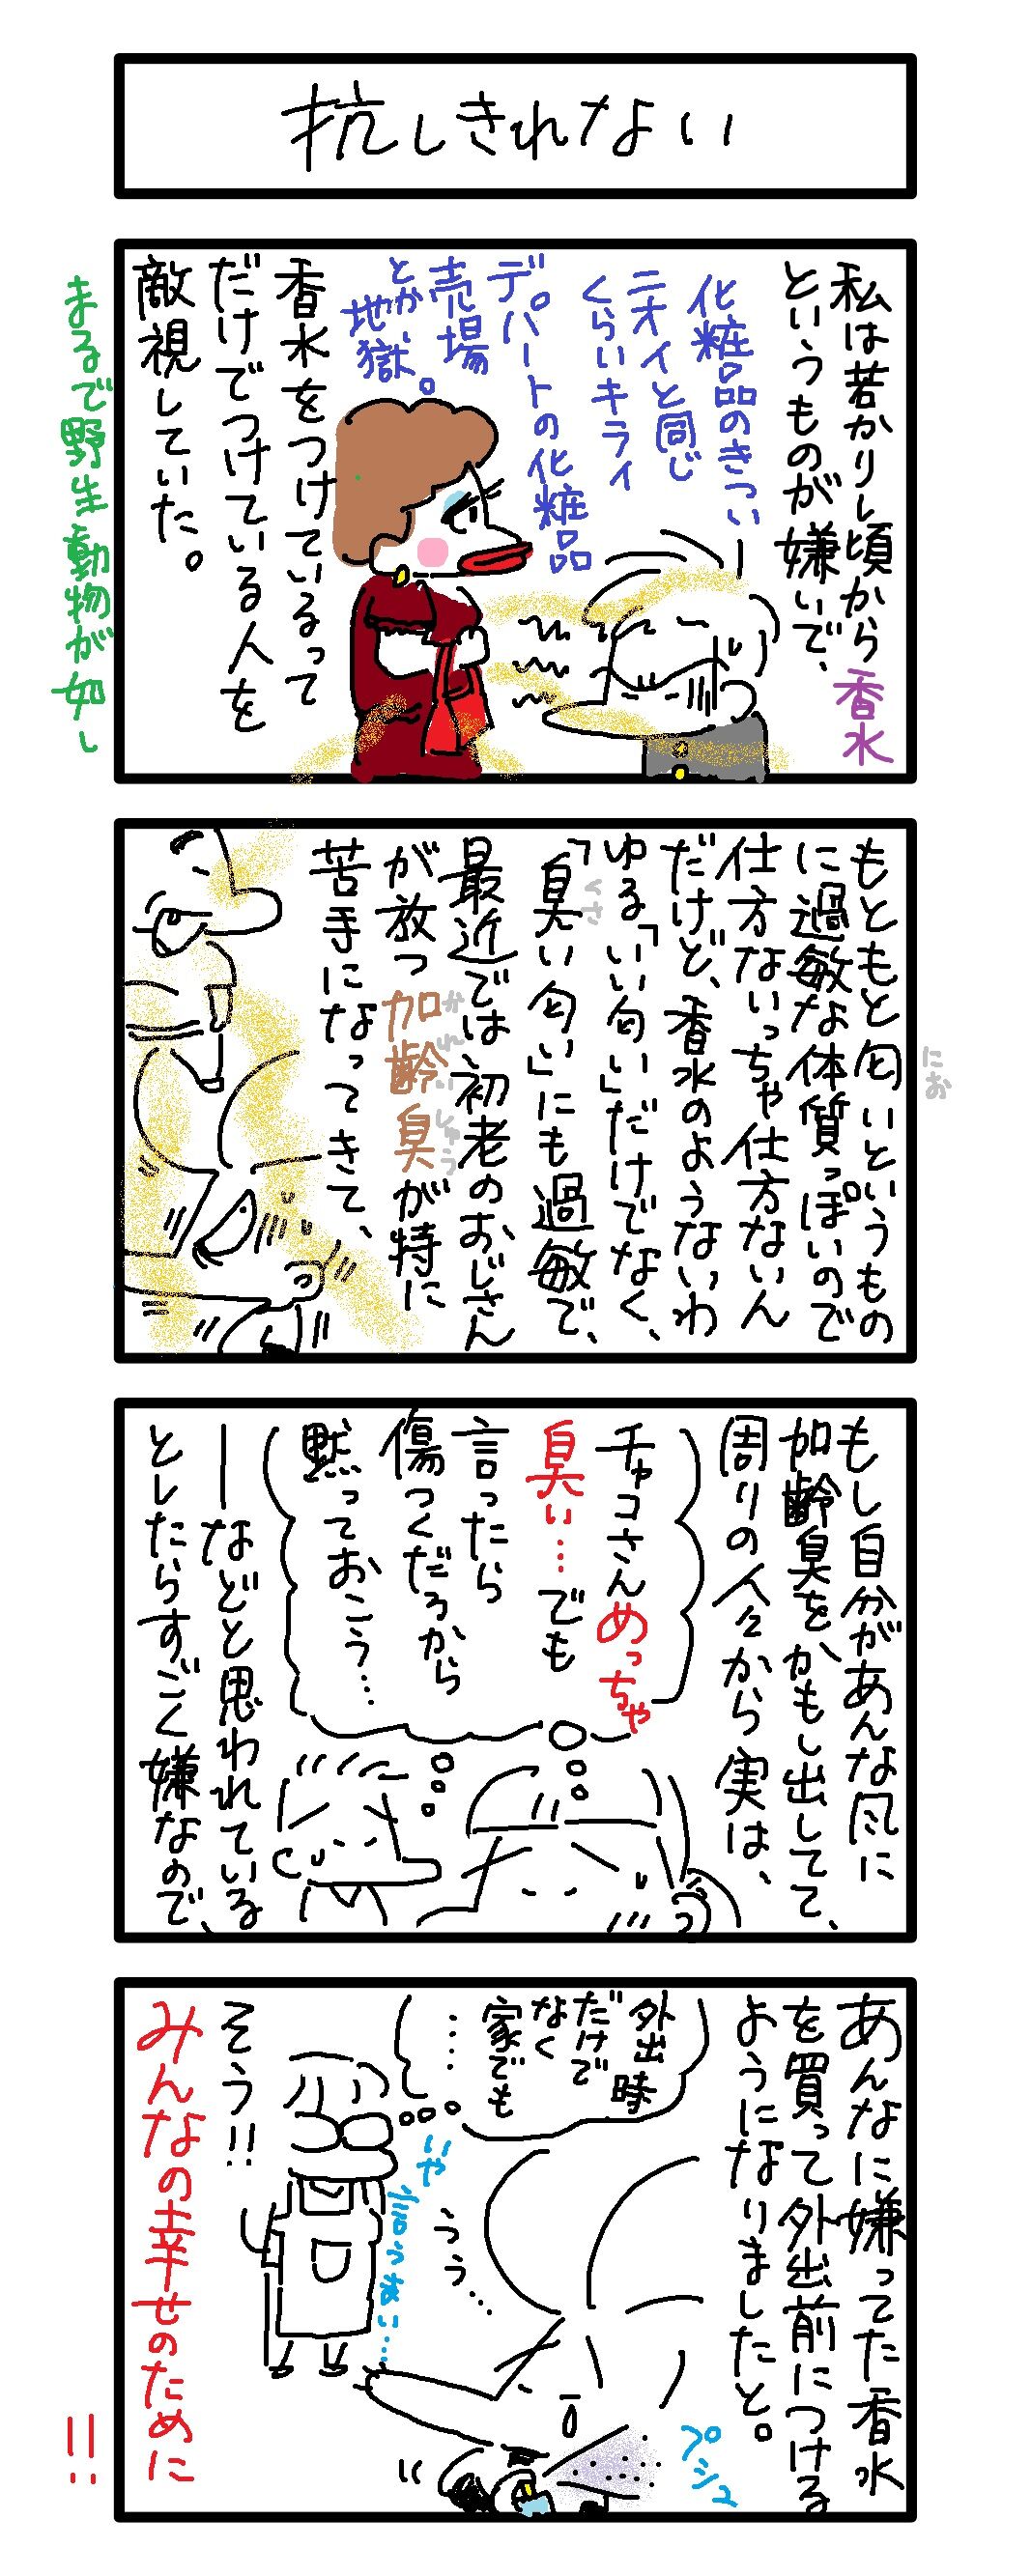 抗しきれない
私は若かりし頃から香水
というものが嫌いで、
化粧品のきつい
ニオイと同じ
くらいキライ
デパートの化粧品
売場
とか、
地獄。
香水をつけているって
だけでつけている人を
敵視していた。
まるで野生動物が如し
もともと匂いというもの
にお
に過敏な体質っぽいので
仕方ないっちゃ仕方ないん
だけど、香水のようないわ
ゆる「いい匂い」だけでなく、
「臭い匂い」にも過敏で、
くさ
最近では初老のおじさん
が放つ加齢臭が特に
かれいしゅう
苦手になってきて、
もし自分があんな風に
加齢臭をかもし出してて、
周りの人々から実は、
チャコさんめっちゃ
臭い…でも
言ったら
傷つくだろうから
黙っておこう…
―などと思われている
としたらすごく嫌なので、
あんなに嫌ってた香水
を買って外出前につける
ようになりましたと。
外出時
だけで
なく
家でも
……
いや
言うまい…
うう…
プシュ
そう!!
みんなの幸せのために
!!